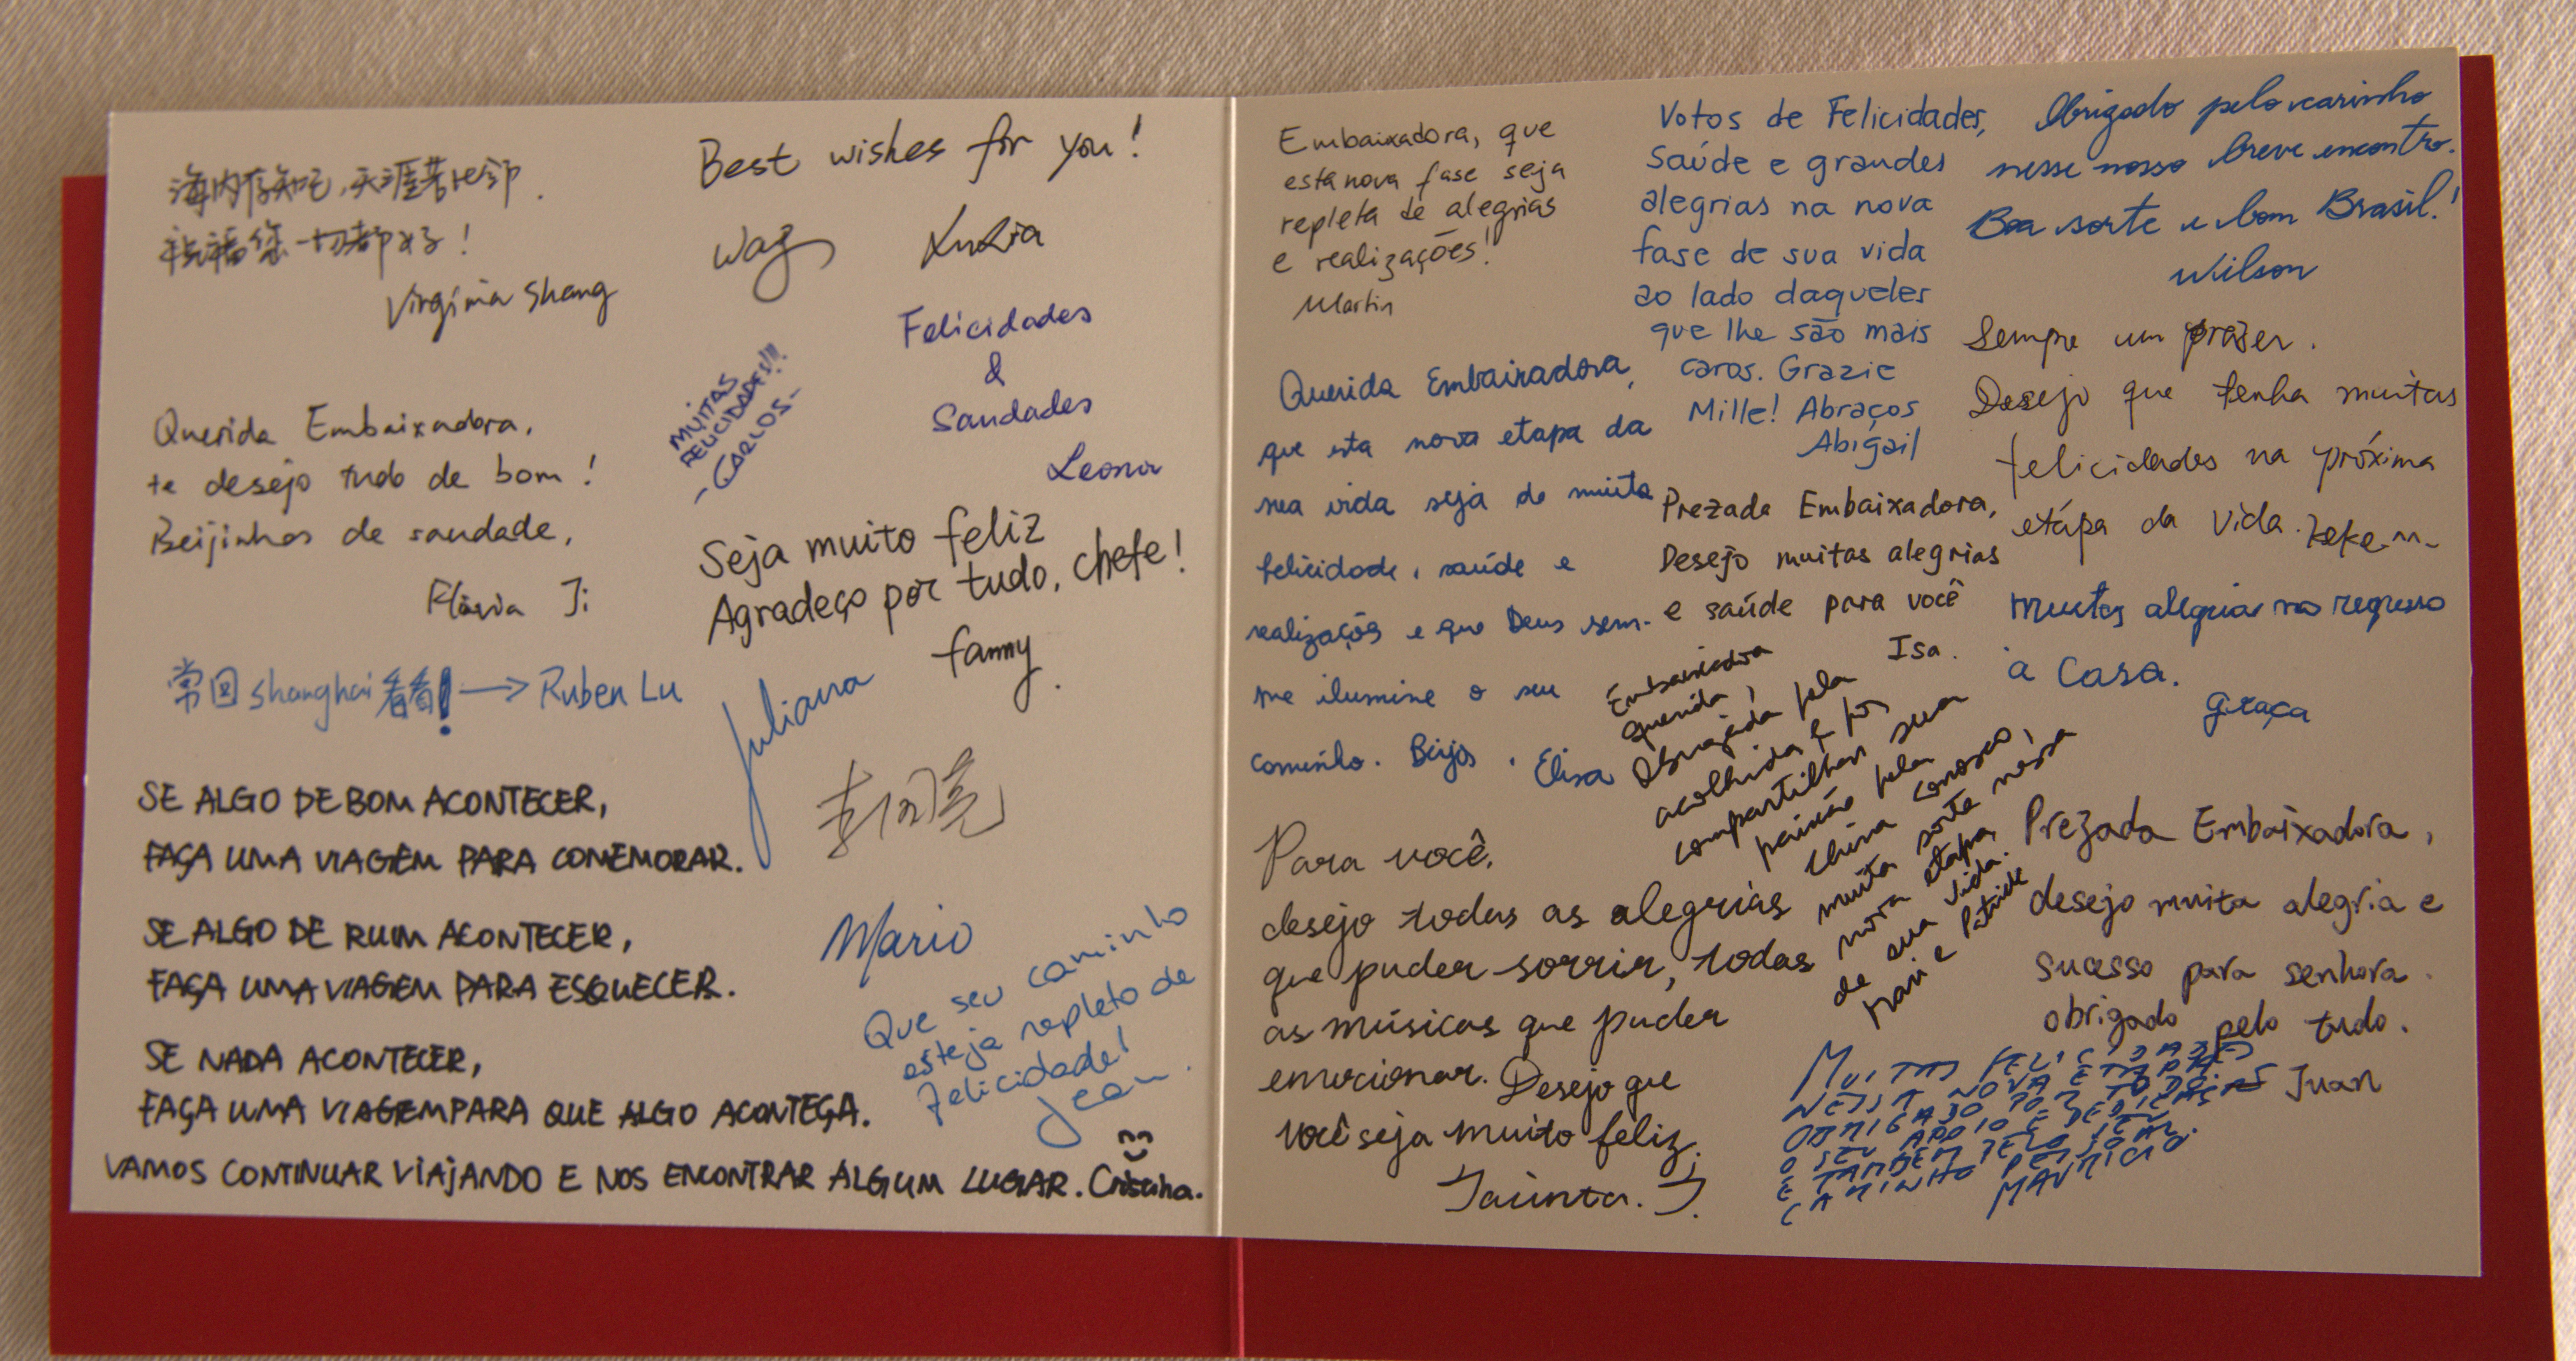 海内存知己，天涯若比邻.
祝福您一切都好！
Virgínia Shang
Best wishes for you!
Felicidades
&
Saudades
Leonor
MUITAS
FELICIDADES!!!
-CARLOS-
Querida Embaixadora,
te desejo tudo de bom!
Beijinhos de saudade,
Flávia Ji
Seja muito feliz
Agradeço por tudo, chefe!
fanny.
常回shanghai看看! → Ruben Lu
Juliana
SE ALGO DE BOM ACONTECER,
FAÇA UMA VIAGEM PARA COMEMORAR.
SE ALGO DE RUIM ACONTECER,
FAÇA UMA VIAGEM PARA ESQUECER.
SE NADA ACONTECER,
FAÇA UMA VIAGEM PARA QUE ALGO ACONTEÇA.
VAMOS CONTINUAR VIAJANDO E NOS ENCONTRAR ALGUM LUGAR.
Mario
Que seu caminho
esteja repleto de
felicidade!
Jean.
Embaixadora, que
esta nova fase seja
repleta de alegrias
e realizações!
Martin
Votos de Felicidades,
Saúde e grandes
alegrias na nova
fase de sua vida
ao lado daqueles
que lhe são mais
caros. Grazie
Mille! Abraços
Abigail
Obrigado pelo carinho
nesse nosso breve encontro.
Boa sorte e bom Brasil!
Wilson
Querida Embaixadora,
que esta nova etapa da
sua vida seja de muita
felicidade, saúde e
realizações e que Deus sem-
pre ilumine o seu
caminho. Beijos, Elisa
Sempre um prazer.
Desejo que tenha muitas
felicidades na próxima
etapa da vida.
Prezada Embaixadora,
Desejo muitas alegrias
e saúde para você
Isa.
Muitas alegrias no regresso
à Casa.
Graça
Embaixadora
querida,
Obrigada pela
acolhida e por
compartilhar sua
paixão pela
China conosco,
muita sorte nessa
nova etapa
de sua vida.
Para você,
desejo todas as alegrias
que puder sorrir, todas
as músicas que puder
emocionar. Desejo que
você seja muito feliz.
Prezada Embaixadora,
desejo muita alegria e
sucesso para senhora.
obrigado pelo tudo.
Juan
MUITAS FELICIDADES
NESSA NOVA ETAPA.
OBRIGADO POR TODO
O SEU APOIO E
E TAMBÉM PELO SEU
CARINHO PESSOAL.
MAURICIO